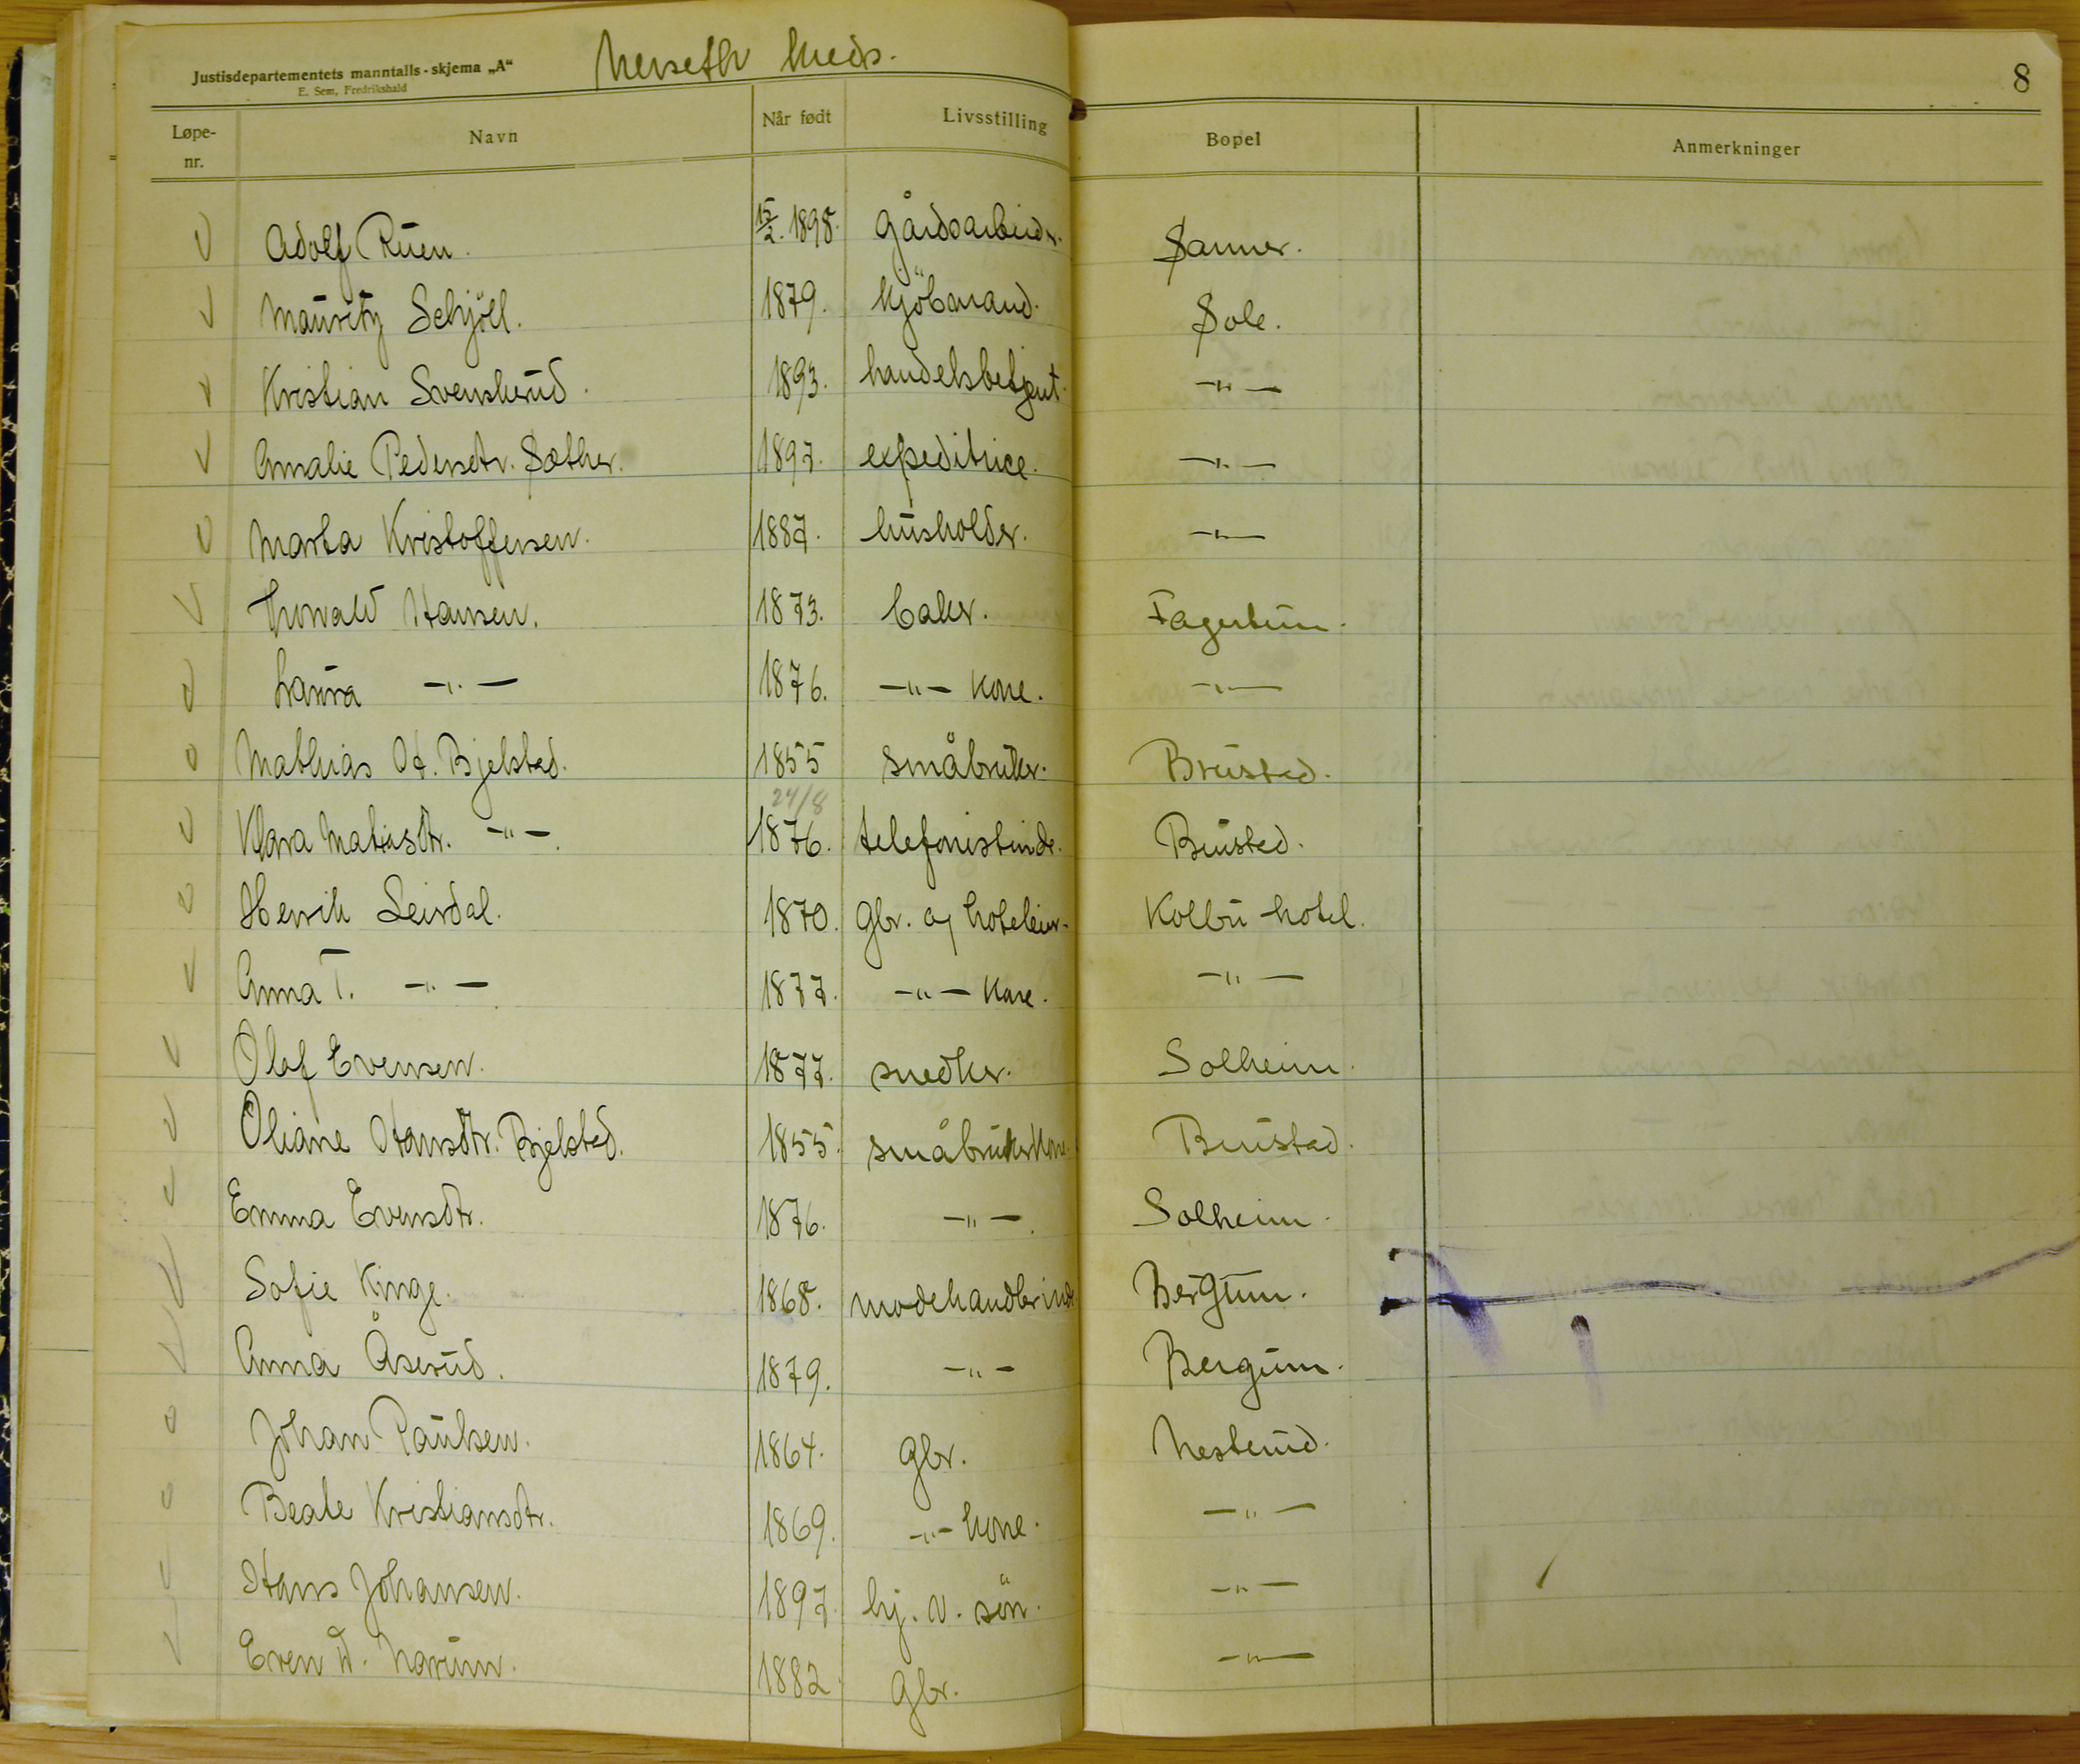 Justisdepartementets manntalls-skjema „A“
E. Sem, Fredrikshald
Nerseth kreds.
8
Løpe-nr. Navn Når født Livsstilling Bopel Anmerkninger
V Adolf Ruen. 15/2. 1898. gårdsarbeider. Sanner.
V Mauritz Schjöll. 1879. kjöbmand. Sole.
V Kristian Svenskerud. 1893. handelsbetjent. -"-
V Amalie Pedersdtr. Sæther. 1897. expeditrice. -"-
V Marta Kristoffersen. 1887. husholder. -"-
V Thorvald Hansen. 1873. baker. Fagertun.
V Laura -"- 1876. -"- kone. -"-
V Mathias H. Bjelstad. 1855 småbruker. Brustad.
24/8
V Klara Matiasdtr. -"-. 1876. telefonistinde. Brustad.
V Henrik Leirdal. 1870. Gbr. og hoteleier. Kolbu hotel.
V Anna T. -"-. 1877. -"- kone. -"-
V Olof Evensen. 1877. snedker. Solheim.
V Oliane Hansdtr. Bjelstad. 1855. småbrukerkone. Brustad.
V Emma Evensdtr. 1876. -"-. Solheim.
V Sofie Kinge. 1868. modehandlerinde Bergtun.
V Anna Åserud. 1879. -"- Bergum.
V Johan Paulsen. 1864. gbr. Nesterud.
V Beate Kristiansdtr. 1869. -"- kone. -"-
V Hans Johansen. 1897. hj. v. sön. -"-
V Even W. Narum. 1882. gbr. -"-